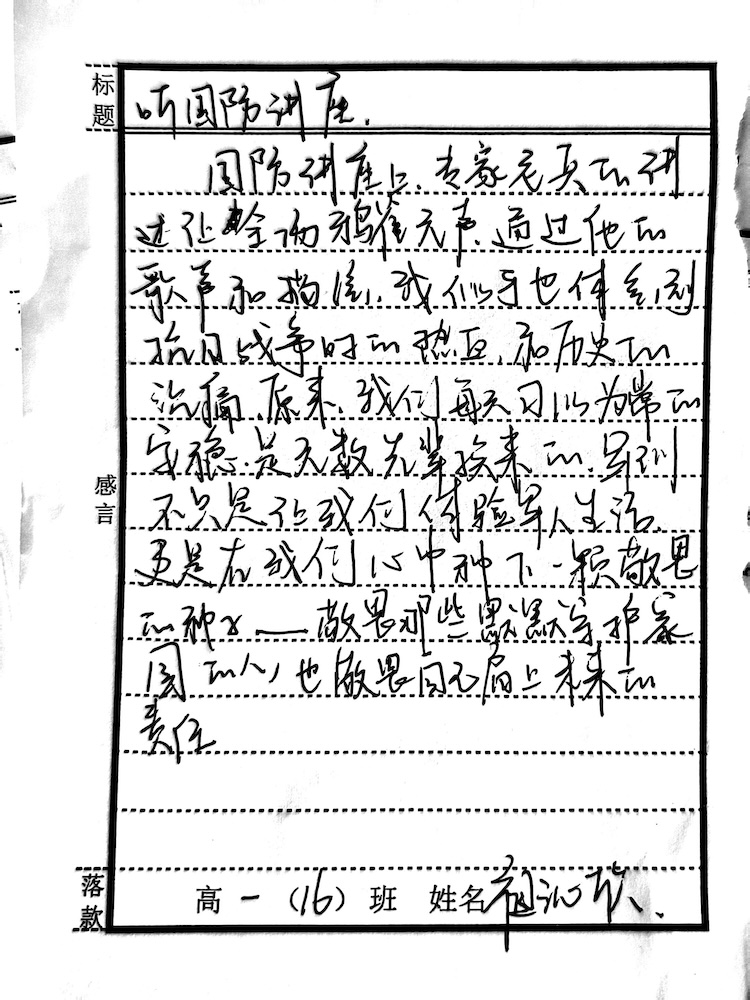 标题
听国防讲座.
国防讲座上,专家老兵的讲
述让全场鸦雀无声,通过他的
歌声和描绘,我们与也体会到
抗日战争时的热血,和历史的
沉痛,原来,我们每天习以为常的
安稳,是无数先辈换来的,军训
不只是让我们体验军人生活,
更是在我们心中种下一颗敬畏
的种子——敬畏那些默默守护家
国的人,也敬畏自己肩上未来的
责任
感言
落款 高一(16)班 姓名